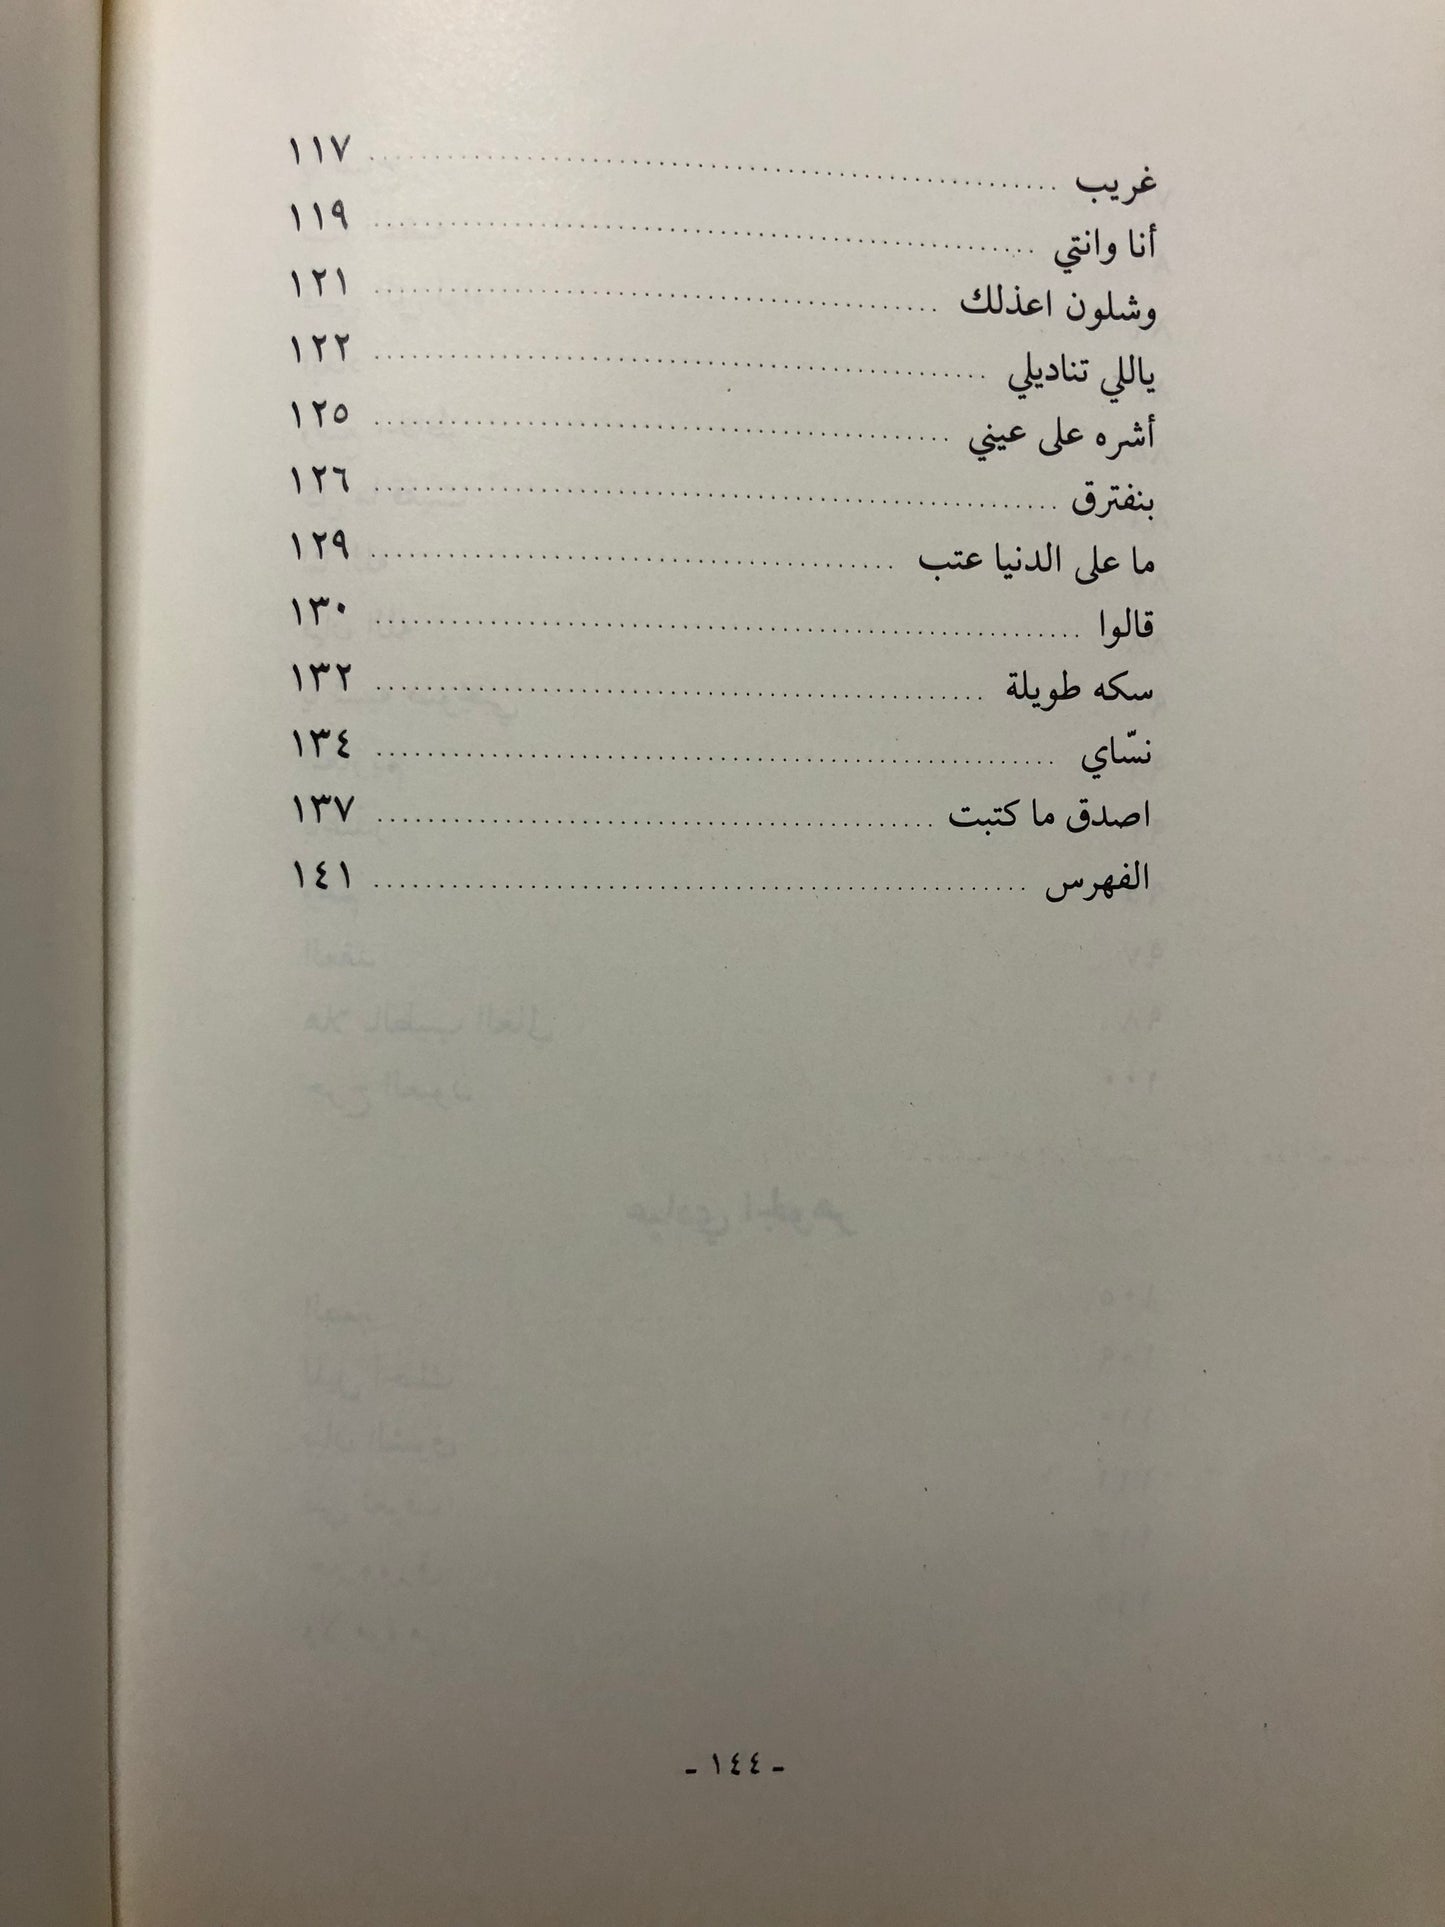 غريب ........ ١١٧
أنا وانتي ........ ١١٩
وشلون اعذلك ........ ١٢١
ياللي تناديلي ........ ١٢٢
أشره على عيني ........ ١٢٥
بنفترق ........ ١٢٦
ما على الدنيا عتب ........ ١٢٩
قالوا ........ ١٣٠
سكه طويلة ........ ١٣٢
نسّاي ........ ١٣٤
اصدق ما كتبت ........ ١٣٧
الفهرس ........ ١٤١
- ١٤٤ -